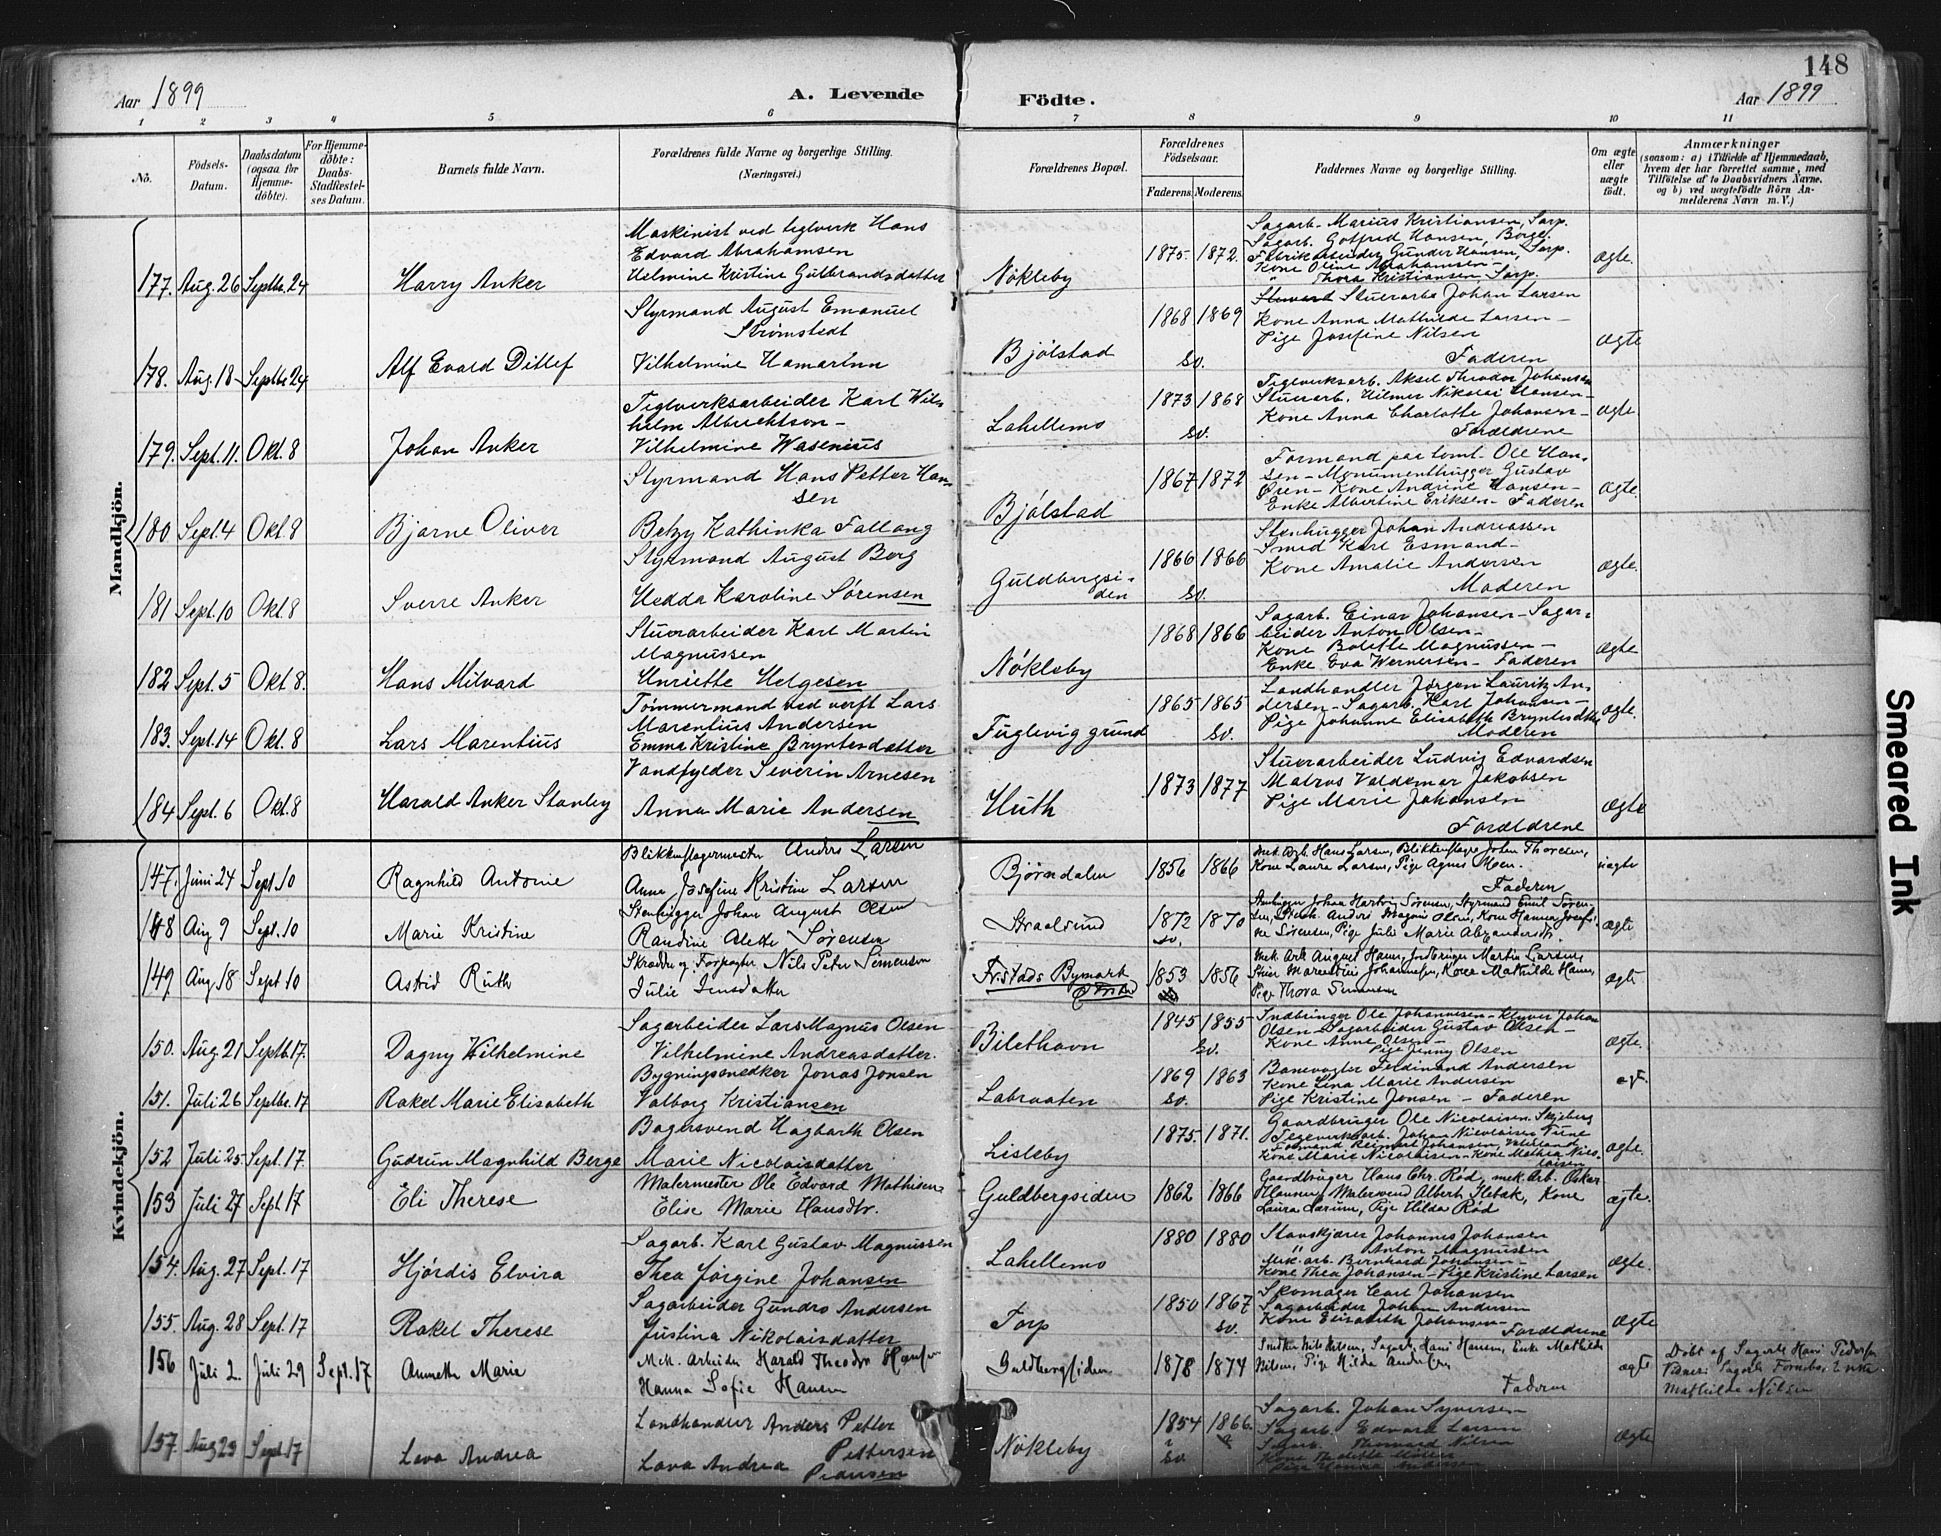 148
Aar 1899
A. Levende
Födte.
Aar 1899
1 2 3 4 5 6 7 8 9 10 11
No.
Födsels-Datum.
Daabsdatum (ogsaa for Hjemmedöbte).
For Hjemmedöbte: Daabs-Stadfæstelses Datum.
Barnets fulde Navn.
Forældrenes fulde Navne og borgerlige Stilling.
(Næringsvei.)
Forældrenes Bopæl.
Forældrenes Födselsaar.
Faderens. Moderens.
Faddernes Navne og borgerlige Stilling.
Om ægte eller uægte födt.
Anmærkninger
(saasom: a) i Tilfælde af Hjemmedaab, hvem der har forrettet samme, med Tilföielse af to Daabsvidners Navne. og b) ved uægtefödte Börn Anmelderens Navn m. V.)
Mandkjön.
Maskinist ved teglverk Hans
Edvard Abrahamsen
177. Aug. 26 Septbr. 24 Harry Anker Helmine Kristine Gulbrandsdatter Nökleby 1875. 1872.
Sagarb. Marius Kristiansen, Sarp.
Sagarb. Gotfred Hansen, Borge.
Fabrikarbeider Gunder Hansen, Sarp.
Kone Oline Abrahamsen
Thora Kristiansen Sarp.
ægte.
Styrmand August Emanuel
Strømstedt
178. Aug. 18 Septbr 24 Alf Evald Ditlef Vilhelmine Bjölstad 1868 1869 sv.
Stuerarb. Johan Larsen
Kone Anna Mathilde Larsen
Pige Josefine Nilsen
Faderen
ægte
Teglverksarbeider Karl Wilhelm Albrechtson
179. Sept. 11. Okt. 8 Johan Anker Vilhelmine Wasenius Lahellemo 1873 1868 sv.
Teglverksarb. Aksel Theodor Johansen
Stuerarb. Hilmer Nikolai Hansen
Kone Anna Charlotte Johansen
Forældrene
ægte.
Styrmand Hans Petter Hansen
180 Sept. 4 Okt. 8 Bjarne Oliver Betzy Kathinka Fallang Bjölstad 1867 1872
Formand paa tomt. Ole Hansen - Monumenthugger Gustav
Ören - Kone Andrine Hansen -
Enke Albertine Eriksen - Faderen
ægte.
Styrmand August Berg
181 Sept. 10 Okt. 8 Sverre Anker Hedda Karoline Sørensen Guldbergsiden 1866 1866 sv.
Stenhugger Johan Andreassen
Smed Karl Esmand
Kone Amalie Andersen
Moderen
ægte.
Stuerarbeider Karl Martin
Magnussen
182 Sept. 5 Okt 8. Hans Milvard Henriette Helgesen Nökleby 1868 1866
Sagarb. Einar Johansen - Sagarbeider Anton Olsen -
Kone Bolette Magnussen
Enke Eva Wernersen - Faderen
ægte
Tømmermand ved verft Lars
Marentius Andersen
183. Sept. 14 Okt. 8 Lars Marentius Emma Kristine Bryntesdatter Fuglevig grund 1865 1865 sv.
Landhandler Jørgen Lauritz Andersen - Sagarb. Karl Johansen -
Pige Johanne Elisabeth Bryntesdtr
Moderen
ægte.
Vandfylder Severin Arnesen
184 Sept. 6 Okt. 8 Harald Anker Stanley Anna Marie Andersen Huth 1873 1877
Stuerarbeider Ludvig Edvardsen
Matros Valdemar Jakobsen
Pige Marie Johansen
Forældrene
ægte
Kvindekjön.
Blikkenslagermester Anders Larsen
147. Juni 24 Sept. 10 Ragnhild Antonie Anna Josefine Kristine Larsen Bjørndalen 1856 1866
Mek. Arb. Hans Larsen, Blikkenslager Johan Thoresen,
Kone Laura Larsen, Pige Agnes Moen.
Faderen
Stenhugger Johan August Olsen
148 Aug 9 Sept. 10 Marie Kristine Randine Alette Sørensen Straalsund 1872 1870 sv.
Stenhugger Johan Martin Sørensen, Styrmand Emil Sørensen,
Kone Hanna Josefine Sørensen, Pige Julie Marie
ægte
Skrædder og Forpagter Nils Peter Simensen
149 Aug 18 Sept 10 Astrid Ruth Julie Jensdatter Fr.stads Bymark 1853 1856
Mek. Arb. August Hansen, Indbringer Martin Larsen,
Johannesen, Kone Mathilde Hansen,
Pige Thora Simensen
ægte
Sagarbeider Lars Magnus Olsen
150. Aug. 21 Septb. 17. Dagny Wilhelmine Vilhelmine Andreasdatter. Bilethavn 1845 1855 sv.
Indbringer Ole Johannesen - Klyver Johan
Olsen - Sagarbeider Gustav Olsen -
Kone Anne Olsen -
Pige Jenny Olsen
ægte.
Bygningssnedker Jonas Jonsen
151. Juli 26 Septbr. 17 Rakel Marie Elisabeth Valborg Kristiansen Labraaten 1869 1863 sv.
Banevogter Ferdinand Andersen
Kone Lina Marie Andersen
Pige Kristine Jonsen - Faderen
ægt.
Bagersvend Hagbarth Olsen
152 Juli 25 Sept. 17 Gudrun Magnhild Berge Marie Nicolaisdatter Lisleby 1875. 1871.
Gaardbruger Ole Nicolaisen Skjeberg
Tegleverksarb. Johan Nicolaisen Tune
Formand Reimert Johansen,
Kone Marie Nicolaisen - Kone Mathea Nicolaisen
ægte.
Malermester Ole Edvard Mathisen
153 Juli 27 Sept 17 Eli Therese Elise Marie Hansdtr. Guldbergsiden 1862 1866
Gaardbruger Hans Chr. Rød, mek. Arb. Oskar
Hansen, Malersvend Albert Flebak, Kone
Laura Larsen, Pige Hilda Rød
ægte.
Sagarb. Karl Gustav Magnussen
154. Aug. 27 Sept. 17 Hjördis Elvira Thea Jørgine Johansen Lahellemo 1880 1880
Stavskjærer Johannes Johansen
" Anton Magnussen
Mek. arb. Bernhard Johansen
Kone Thea Johansen - Pige Kristine Larsen
ægte.
Sagarbeider Gundro Andersen
155. Aug. 28 Sept. 17 Rakel Therese Justina Nikolaisdatter Torp 1850 1867 sv.
Skomager Carl Johansen
Sagarbeider Johan Andersen
Kone Elisabeth Johansen
Forældrene
ægte
156 Juli 2. Juli 29 Sept. 17 Annette Marie Mek. Arbeider Harald Theodor Hansen
Hanna Sofie Hansen Guldbergsiden 1878 1874
Snedker Nils Nilsen, Sagarb. Hans Hansen, Enke Mathilde
Nilsen, Pige Hilda Andersen
Faderen
ægt
Döbt af Sagarb. Hans Pedersen
Enke
Mathilde Nilsen
Landhandler Anders Petter
Pettersen
157. Aug 23 Sept 17 Lova Andrea Lova Andrea Nökleby 1854 1866. sv.
Sagarb. Johan Syversen
Sagarb. Edvard Larsen
Sagarb. Nilsen
ægte
Smeared Ink